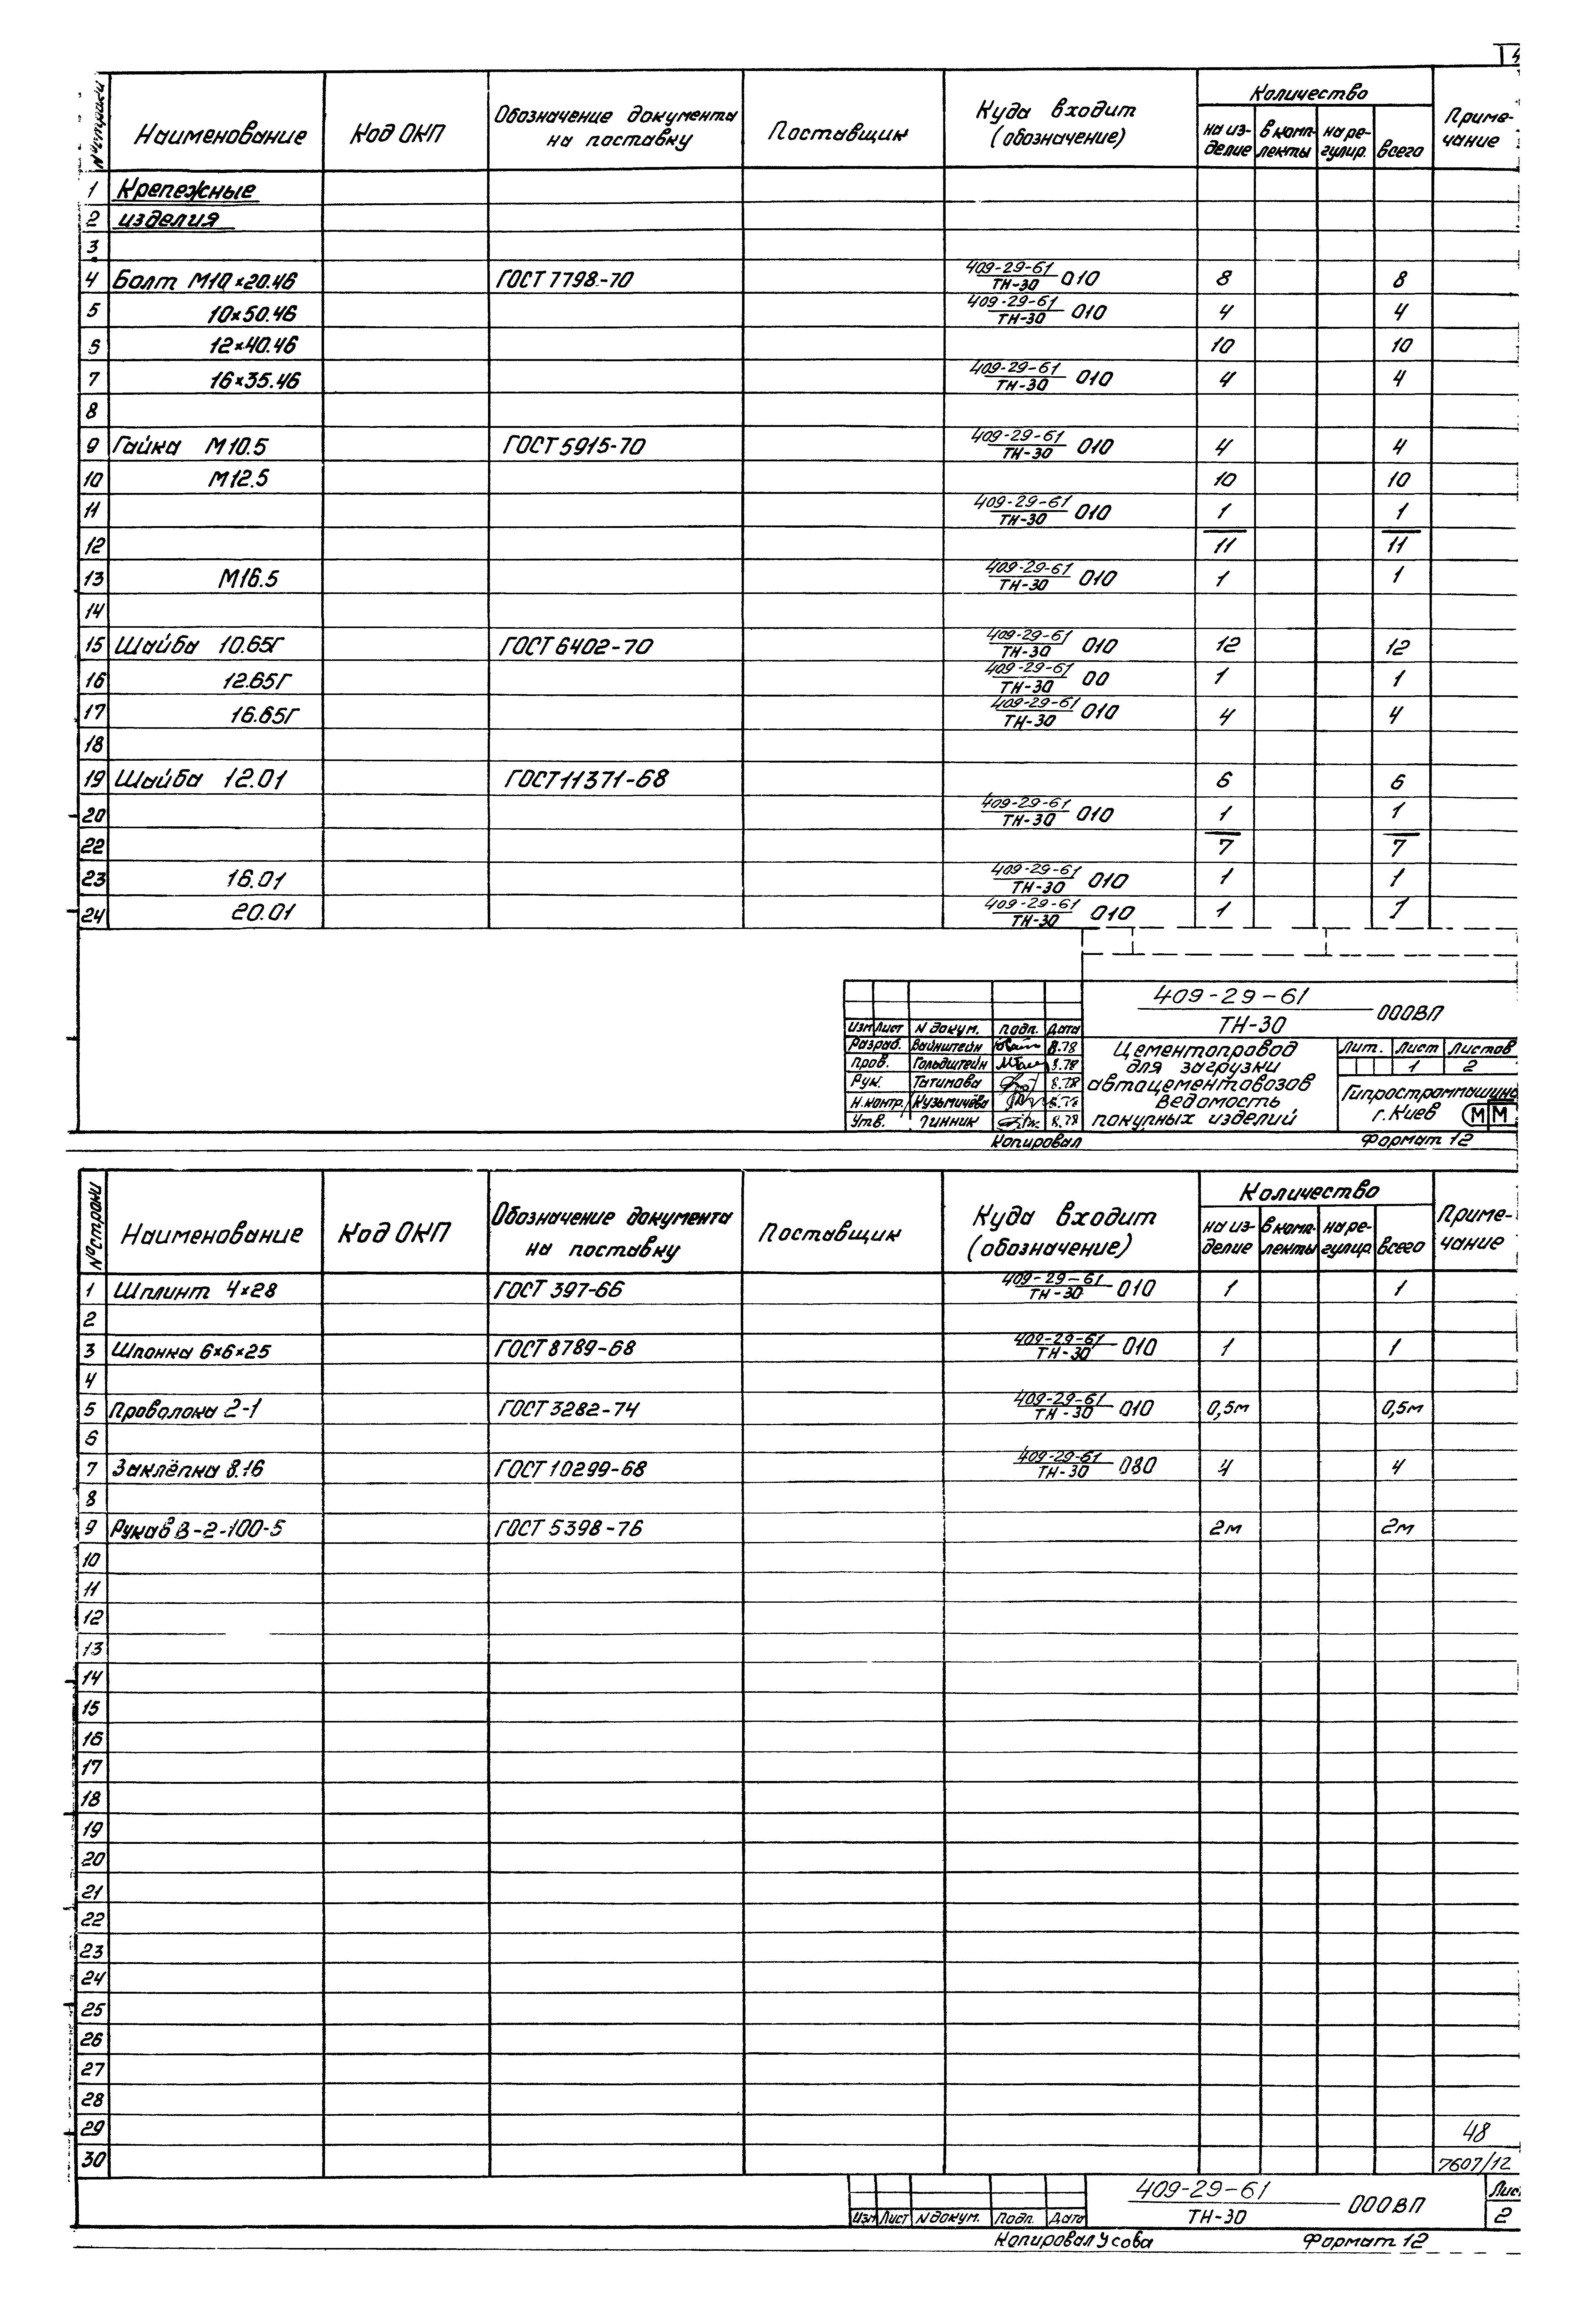 4
№ строки Наименование Код ОКП Обозначение документа на поставку Поставщик Куда входит (обозначение) Количество на изделие в комплекты на регулир. всего Примечание
1 Крепежные
2 изделия
3
4 Болт М10×20.46 ГОСТ 7798-70 409-29-61/ТН-30 010 8 8
5 10×50.46 409-29-61/ТН-30 010 4 4
6 12×40.46 10 10
7 16×35.46 409-29-61/ТН-30 010 4 4
8
9 Гайка М10.5 ГОСТ 5915-70 409-29-61/ТН-30 010 4 4
10 М12.5 10 10
11 409-29-61/ТН-30 010 1 1
12 11 11
13 М16.5 409-29-61/ТН-30 010 1 1
14
15 Шайба 10.65Г ГОСТ 6402-70 409-29-61/ТН-30 010 12 12
16 12.65Г 409-29-61/ТН-30 00 1 1
17 16.65Г 409-29-61/ТН-30 010 4 4
18
19 Шайба 12.01 ГОСТ 11371-68 6 6
20 409-29-61/ТН-30 010 1 1
22 7 7
23 16.01 409-29-61/ТН-30 010 1 1
24 20.01 409-29-61/ТН-30 010 1 1
409-29-61/ТН-30 000ВП
Изм Лист N докум. Подп. Дата
Разраб. Вайнштейн 8.78
Пров. Гольдштейн 8.78
Рук. Татинова 8.78
Н.контр. Кузьмичёва 8.78
Утв. 8.78
Цементопровод
для загрузки
автоцементовозов
Ведомость
покупных изделий
Лит. Лист Листов
1 2
Гипростроммашина
г. Киев ММ
Копировал Формат 12
№ строки Наименование Код ОКП Обозначение документа на поставку Поставщик Куда входит (обозначение) Количество на изделие в комплекты на регулир всего Примечание
1 Шплинт 4×28 ГОСТ 397-66 409-29-61/ТН-30 010 1 1
2
3 Шпонка 6×6×25 ГОСТ 8789-68 409-29-61/ТН-30 010 1 1
4
5 Проволока 2-1 ГОСТ 3282-74 409-29-61/ТН-30 010 0,5м 0,5м
6
7 Заклёпка 8.16 ГОСТ 10299-68 409-29-61/ТН-30 080 4 4
8
9 Рукав В-2-100-5 ГОСТ 5398-76 2м 2м
10
11
12
13
14
15
16
17
18
19
20
21
22
23
24
25
26
27
28
29 48
30 7607/12
409-29-61/ТН-30 000ВП
Изм Лист N докум. Подп. Дата
Лис
2
Копировал Усова Формат 12